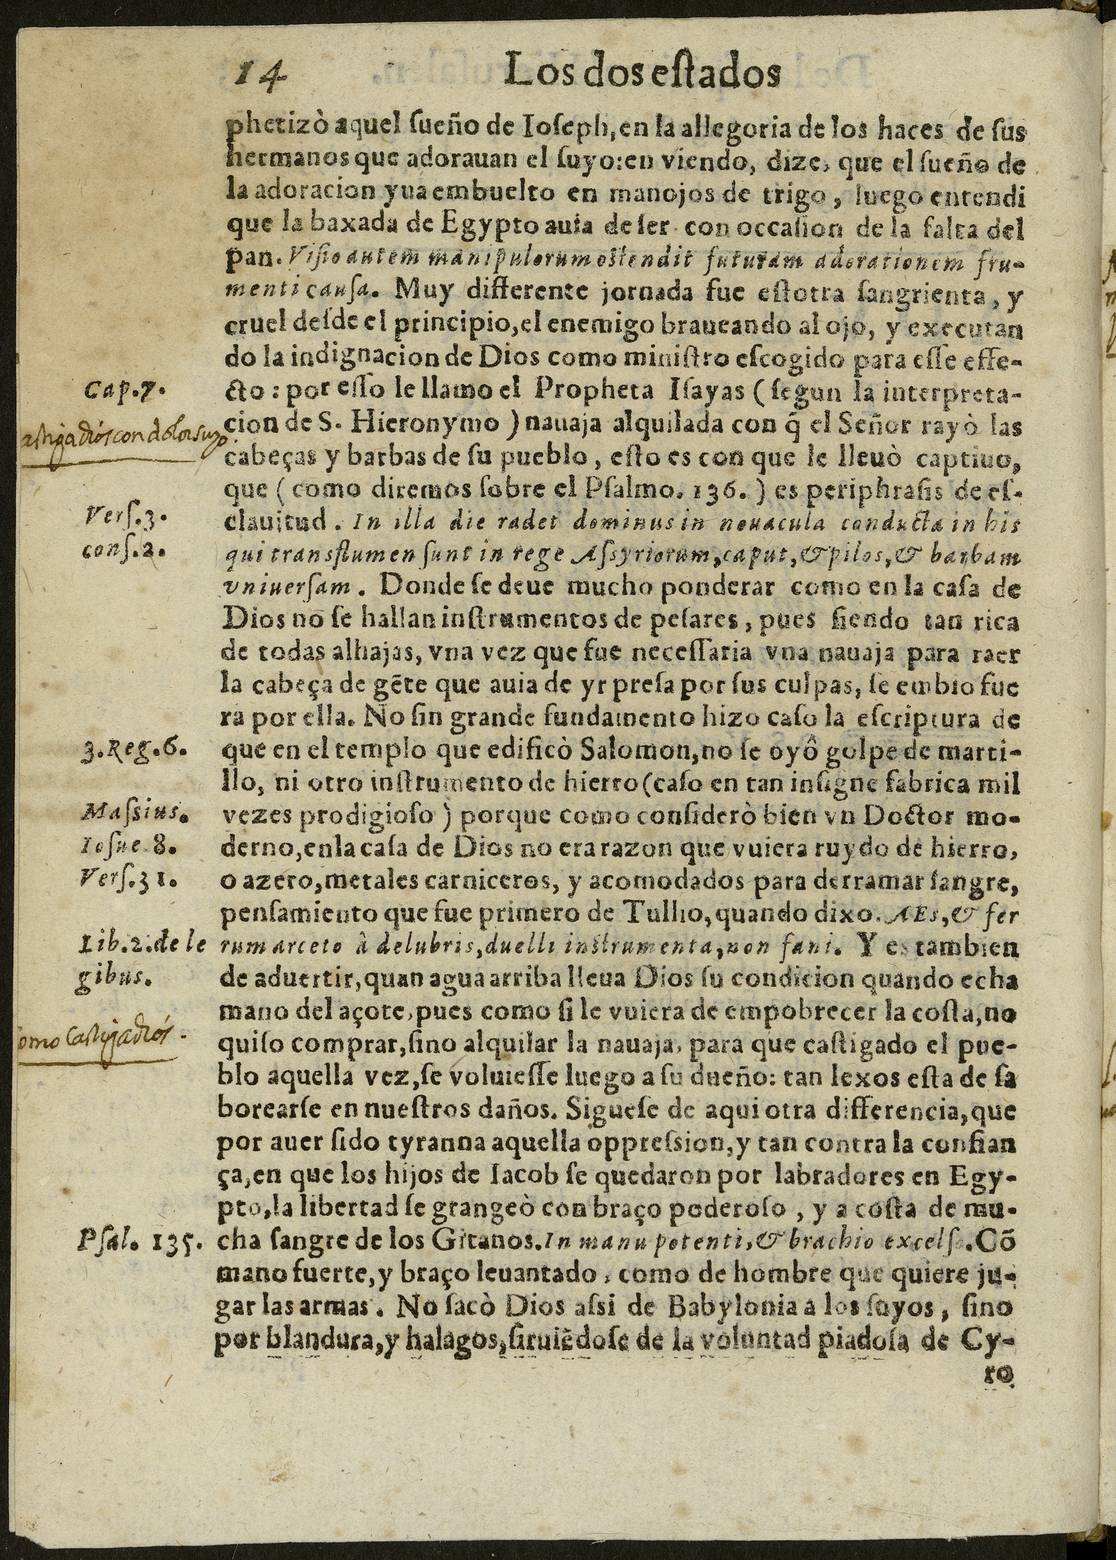 14 Los dos eſtados
phetizò aquel ſueño de Ioſeph, en la allegoria de los haces de ſus
hermanos que adorauan el ſuyo: en viendo, dize, que el ſueño de
la adoracion yua embuelto en manojos de trigo, luego entendi
que la baxada de Egypto auia de ſer con occaſion de la falta del
pan. Viſio autem manipulorum oſtendit futuram adorationem fru-
menti cauſa. Muy differente jornada fue eſtotra ſangrienta, y
cruel deſde el principio, el enemigo braueando al ojo, y executan
do la indignacion de Dios como miniſtro eſcogido para eſſe effe-
Cap.7.
cto: por eſſo le llamo el Propheta Iſayas (ſegun la interpreta-
cion de S. Hieronymo) nauaja alquilada con q̃ el Señor rayò las
astiga diós con dolor suyo.
cabeças y barbas de ſu pueblo, eſto es con que le lleuò captiuo,
que (como diremos ſobre el Pſalmo. 136.) es periphraſis de eſ-
Verſ.3.
clauitud. In illa die radet dominus in nouacula conducta in his
conſ.2.
qui transflumen ſunt in rege Aſsyriorum, caput, & pilos, & barbam
vniuerſam. Donde ſe deue mucho ponderar como en la caſa de
Dios no ſe hallan inſtrumentos de peſares, pues ſiendo tan rica
de todas alhajas, vna vez que fue neceſſaria vna nauaja para raer
la cabeça de gẽte que auia de yr preſa por ſus culpas, ſe embio fue
ra por ella. No ſin grande fundamento hizo caſo la eſcriptura de
3.Reg.6.
que en el templo que edificò Salomon, no ſe oyô golpe de marti-
llo, ni otro inſtrumento de hierro (caſo en tan inſigne fabrica mil
Maſsius.
vezes prodigioſo) porque como conſiderò bien vn Doctor mo-
Ioſue 8.
derno, en la caſa de Dios no era razon que vuiera ruydo de hierro,
Verſ.31.
o azero, metales carniceros, y acomodados para derramar ſangre,
penſamiento que fue primero de Tullio, quando dixo. AEs, & fer
Lib.2.de le
rum arceto â delubris, duelli inſtrumenta, non fani. Y es tambien
gibus.
de aduertir, quan agua arriba lleua Dios ſu condicion quando echa
mano del açote, pues como ſi le vuiera de empobrecer la coſta, no
omo Castiga diós.
quiſo comprar, ſino alquilar la nauaja, para que caſtigado el pue-
blo aquella vez, ſe voluieſſe luego a ſu dueño: tan lexos eſta de ſa
borearſe en nueſtros daños. Sigueſe de aqui otra differencia, que
por auer ſido tyranna aquella oppreſsion, y tan contra la confian
ça, en que los hijos de Iacob ſe quedaron por labradores en Egy-
pto, la libertad ſe grangeò con braço poderoſo, y a coſta de mu-
Pſal. 135.
cha ſangre de los Gitanos. In manu potenti, & brachio excelſo. Cõ
mano fuerte, y braço leuantado, como de hombre que quiere ju-
gar las armas. No ſacò Dios aſsi de Babylonia a los ſuyos, ſino
por blandura, y halagos, ſiruiẽdoſe de la voluntad piadoſa de Cy-
ro